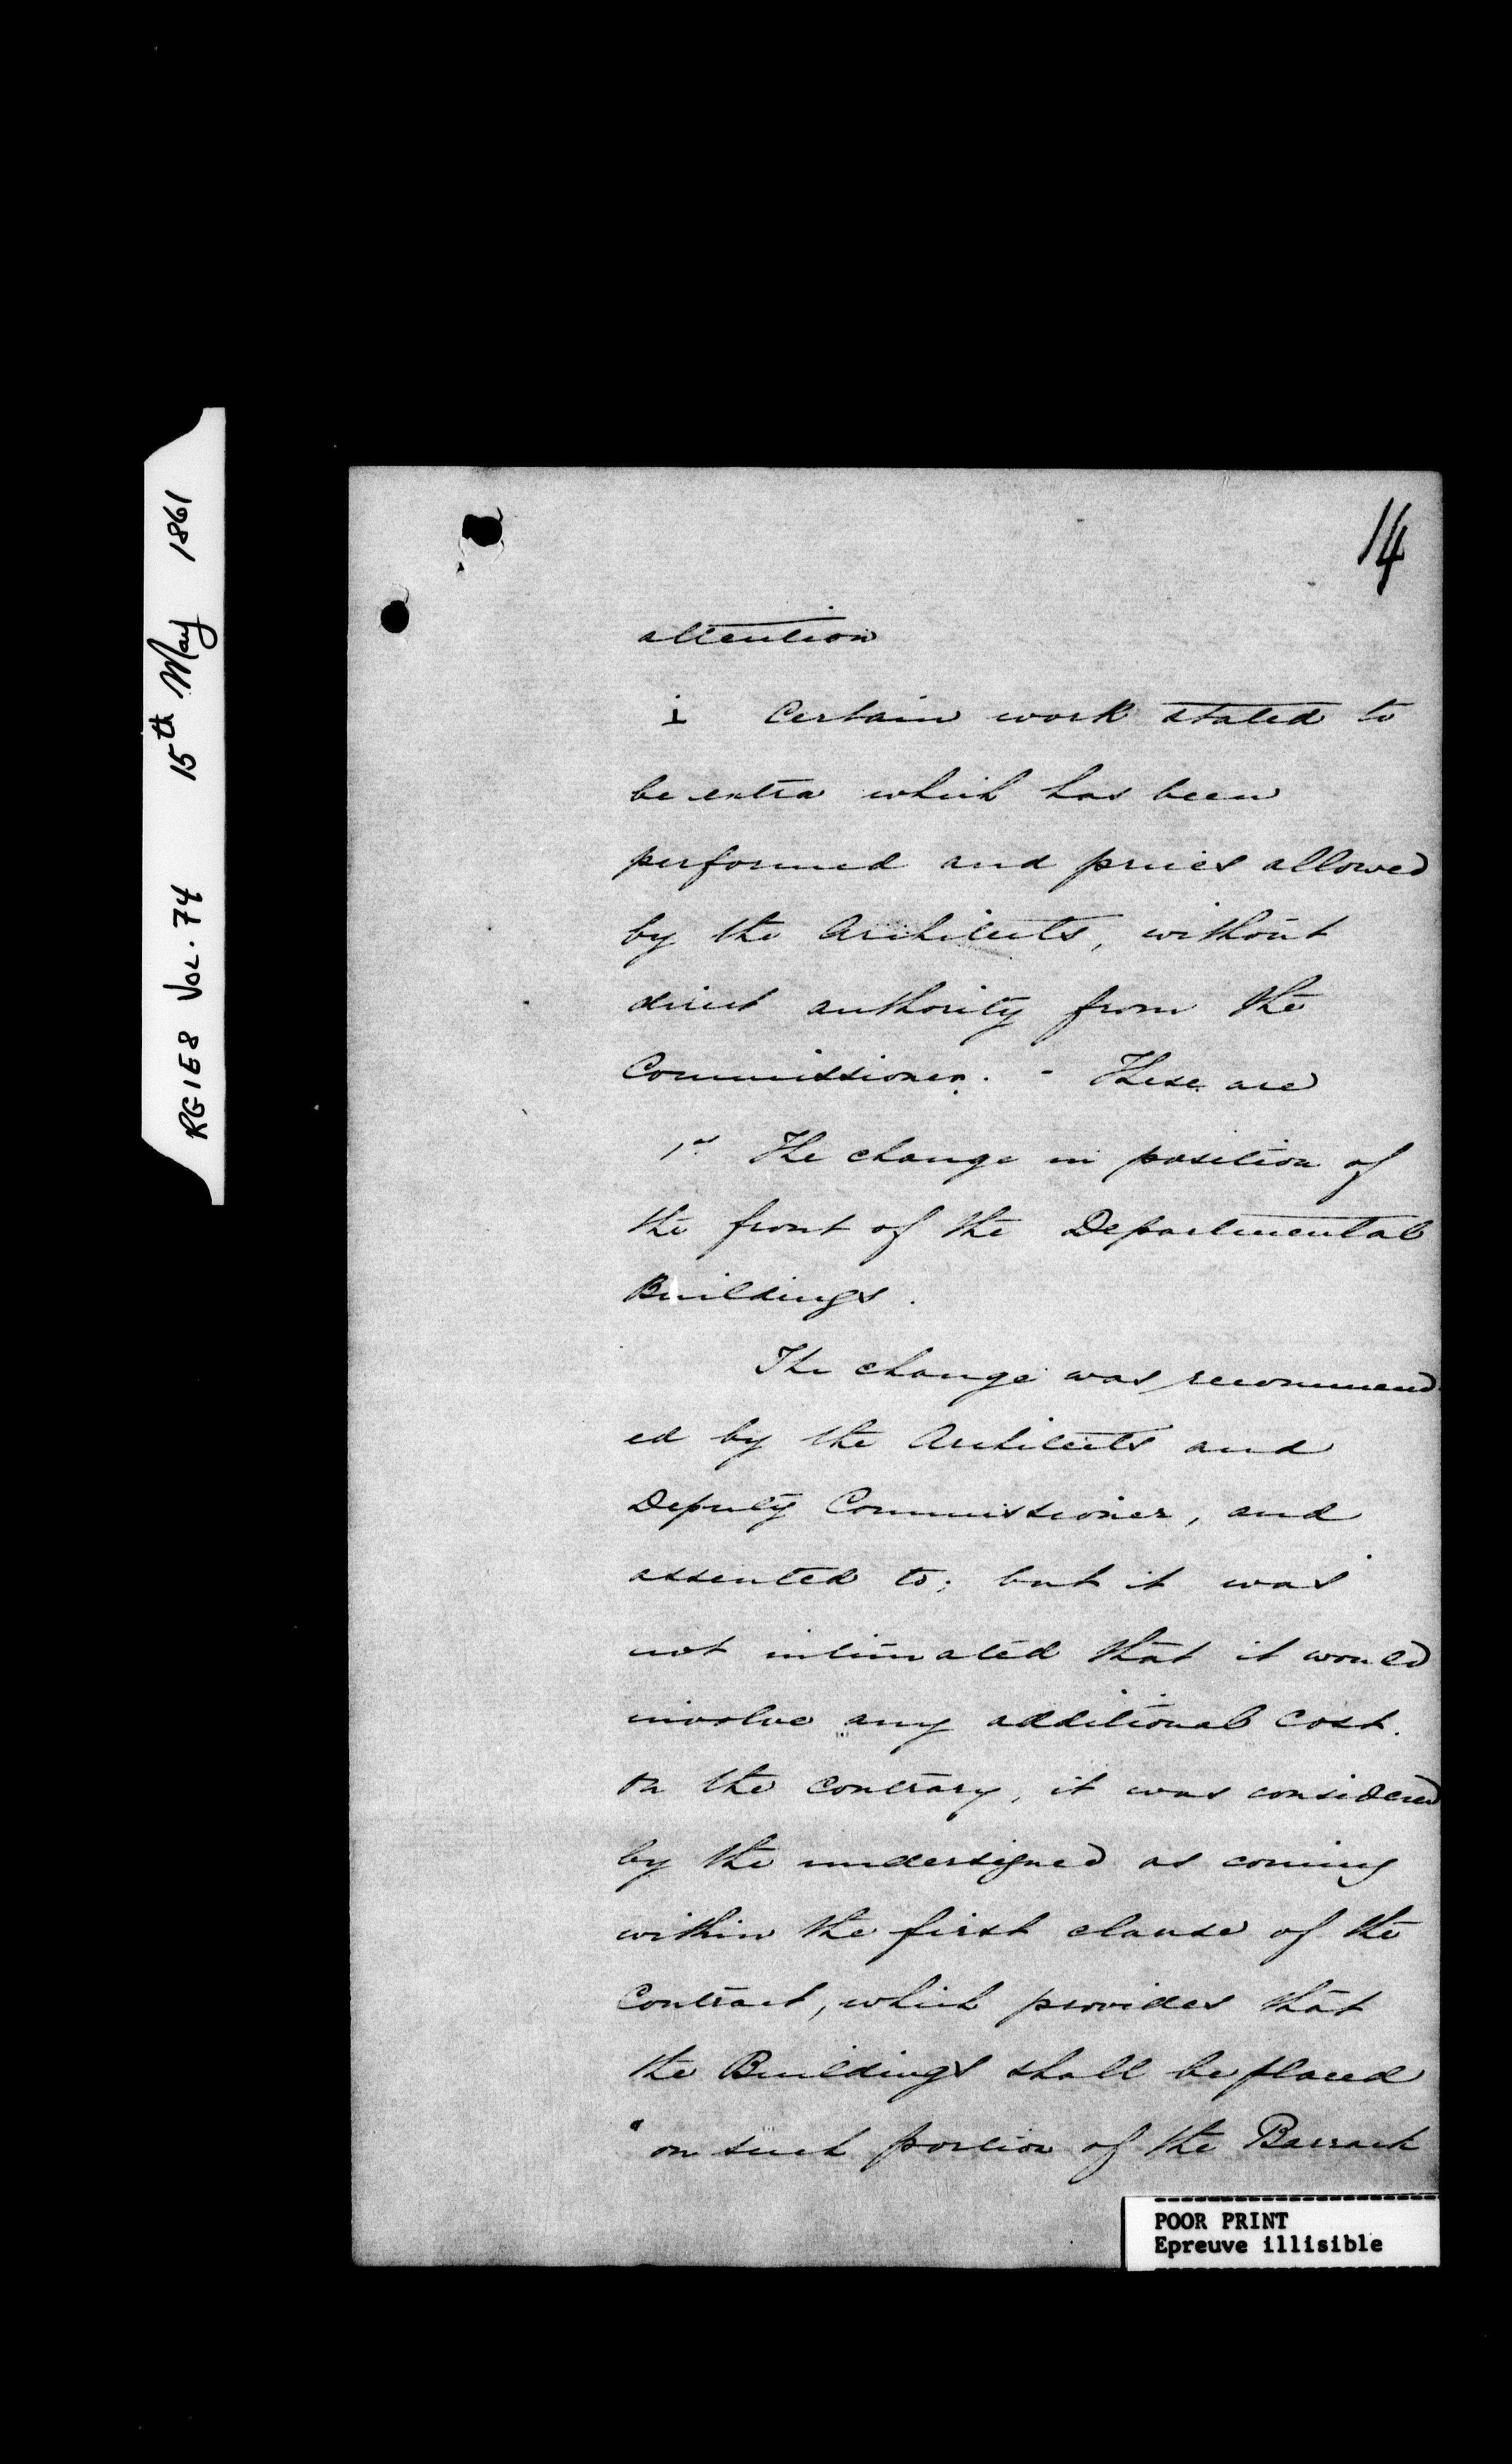 RG1E8 VOL. 74 15th May 1861
14
attention
1 Certain work stated to
be extra which has been
performed and prices allowed
by the Architects, without
direct authority from the
Commissioner. - These are
1st The change in position of
the front of the Departmental
Buildings.
The change was recommend
ed by the Architects and
Deputy Commissioner, and
assented to; but it was
not intimated that it would
involve any additional cost.
On the contrary, it was considered
by the undersigned as coming
within the first clause of the
Contract, which provides that
the Buildings shall be placed
"on such portion of the Barrack
POOR PRINT
Epreuve illisible